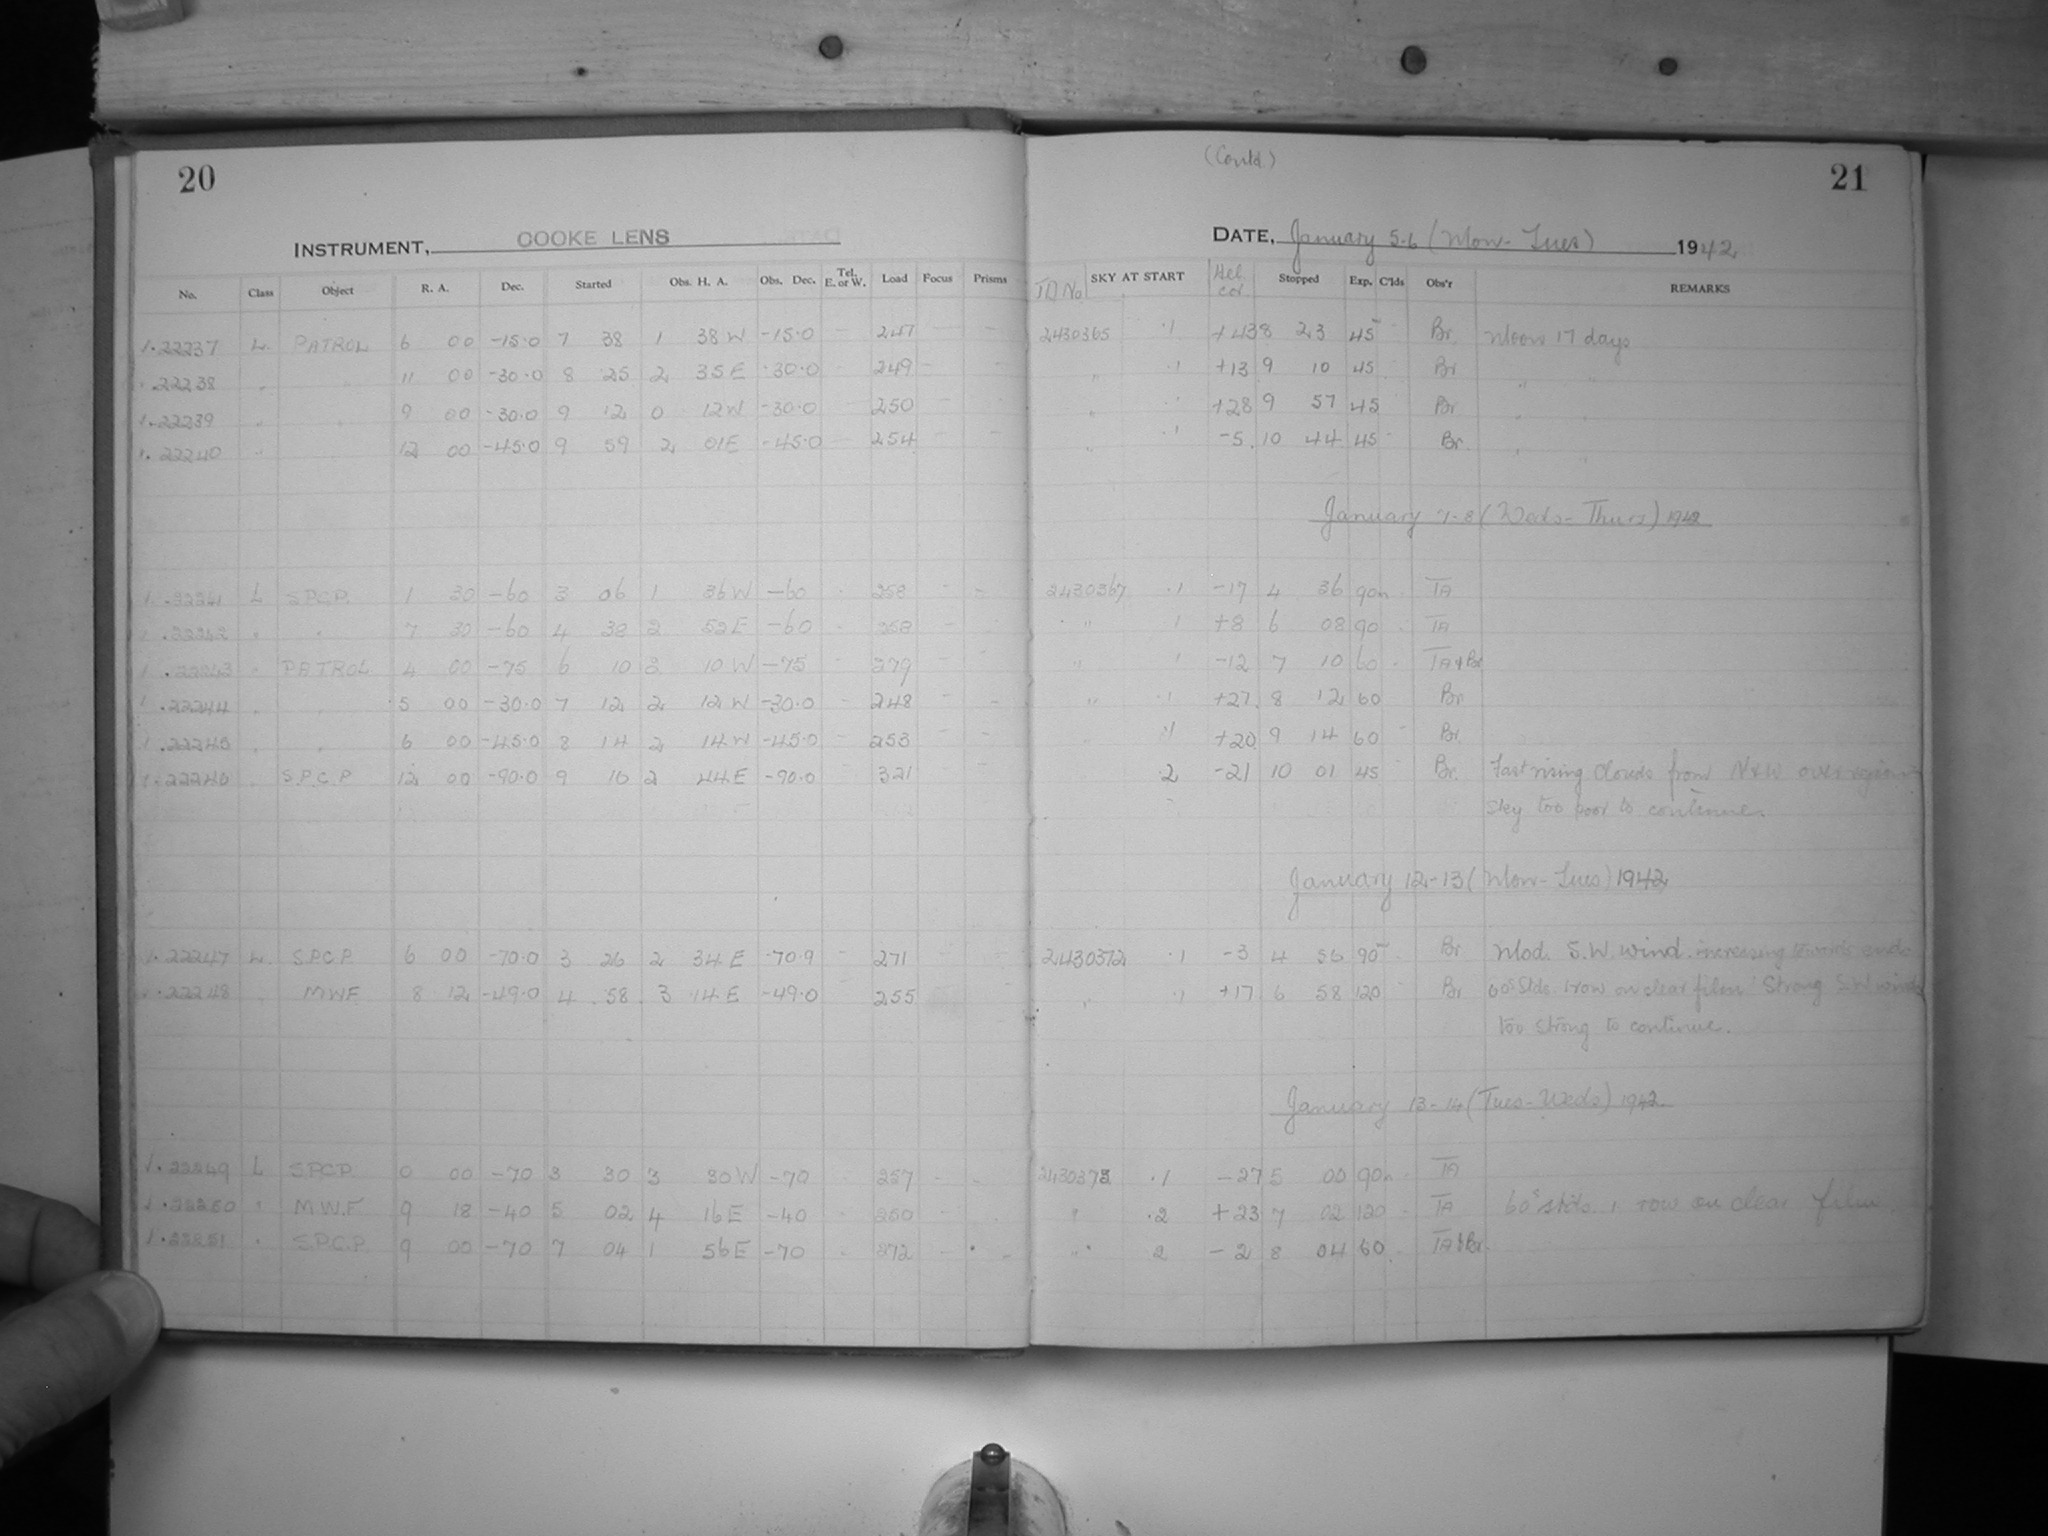 20
INSTRUMENT, COOKE LENS
No. Class Object R. A. Dec. Started Obs. H. A. Obs. Dec. Tel. E. or W. Load Focus Prisms
1.22237 L. PATROL 6 00 -15.0 7 38 1 38 W -15.0 - 247 - -
1.22238 " " 11 00 -30.0 8 25 2 35 E -30.0 249 - -
1.22239 " 9 00 -30.0 9 12 0 12 W -30.0 250
1.22240 " 12 00 -45.0 9 59 2 01 E -45.0 254
1.22241 L SPCP. 1 30 -60 3 06 1 36 W -60 258 - -
1.22242 " " 7 30 -60 4 38 2 52 E -60 258
1.22243 " PATROL 4 00 -75 6 10 2 10 W -75 279
1.22244 " 5 00 -30.0 7 12 2 12 W -30.0 248
1.22245 " " 6 00 -45.0 8 14 2 14 W -45.0 253
1.22246 S.P.C.P 12 00 -90.0 9 16 2 44 E -90.0 321
1.22247 L. S.P.C.P. 6 00 -70.0 3 26 2 34 E -70.9 271
1.22248 MWF. 8 12 -49.0 4 58 3 14 E -49.0 255
1.22249 L SPCP. 0 00 -70 3 30 3 30 W -70 257
1.22250 " M.W.F. 9 18 -40 5 02 4 16 E -40 250
1.22251 " S.P.C.P. 9 00 -70 7 04 1 56 E -70 272
(Contd.)
21
DATE, January 5-6 (Mon-Tues) 1942
JD No. SKY AT START Hel cor Stopped Exp. C'lds Obs'r REMARKS
2430365 .1 +43 8 23 45 Br. Moon 17 days
" .1 +13 9 10 45 Br " "
" .1 +28 9 57 45 Br " "
" .1 -5 10 44 45 Br. " "
January 7-8 (Weds-Thurs) 1942
2430367 .1 -17 4 36 90 TA
" .1 +8 6 08 90 TA
" .1 -12 7 10 60 TA & Br
" .1 +27 8 12 60 Br
.1 +20 9 14 60 Br.
.2 -21 10 01 45 Br. Fast rising clouds from N & W over region
Sky too poor to continue.
January 12-13 (Mon-Tues) 1942
2430372 .1 -3 4 56 90 Br Mod. S.W. wind. increasing towards end
" .1 +17 6 58 120 Br 60s Stds. 1 row on clear film. Strong S.W wind
too strong to continue.
January 13-14 (Tues-Weds) 1942
2430373 .1 -27 5 00 90 TA
" .2 +23 7 02 120 TA 60s stds. 1 row on clear film
" 2 -2 8 04 60 TA & Br.